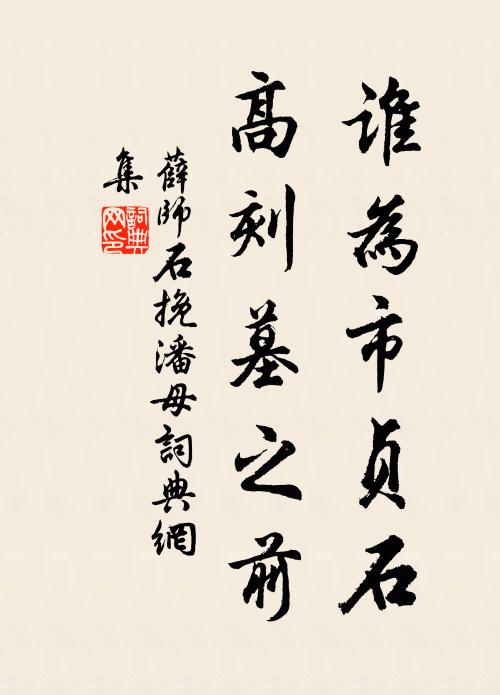 誰為市貞石
高刻墓之前
薛師石挽潘母詞典網
集
詞典網印